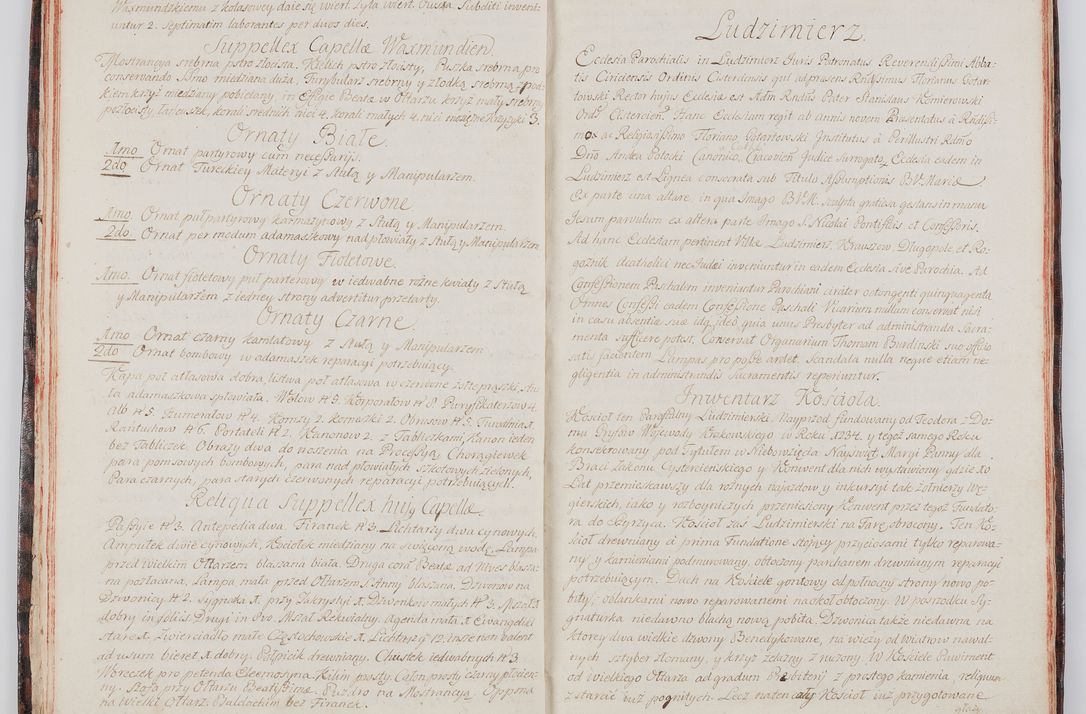 Waxmundzkiemu z kolasowey daie się wiert. żyta wiert. Owsa. Subditi inveni-
untur 2. Septimatim laborantes per duos dies.
Suppellex Capellæ Waxmundien.
Mostrancya srebrna pstro złocista, Kielich pstro złocisty, Puszka srebrna pro
conservando Ssmo miedziana duża, Turybularz srebrny y złodką srebrną z pod-
kiem krzyż miedziany pobielany, in Effigie Beatæ w Ołtarzu krzyż mały srebrny
pozłocisty, Łancuszek, korali srednich nici 4. korali małych 4. nici Krzyżyki 3.
Ornaty Białe.
1mo. Ornat partyrowy cum necessarijs.
2do Ornat Tureckiey Materyi z Stułą y Manipularzem.
Ornaty Czerwone
1mo. Ornat puł partyrowy karmazynowy z Stułą y Manipularzem.
2do. Ornat per medium adamaszkowy nadpłowiały z Stułą y Manipularzem
Ornaty Fioletowe.
1mo. Ornat fioletowy puł parterowy w iedwabne rożne kwiaty z Stułą
y Manipularzem z iedney strony advertitur przetarty.
Ornaty Czarne.
1mo Ornat czarny kamlatowy z Stułą y Manipularzem.
2do Ornat bombowy w adamaszek reparacyi potrzebuiący.
Kapa poł atłasowa dobra, listwa poł atłasowa w czerwone żołte prążki, Stu-
ła adamaszkowa spłowiała. Welow N 5. Korporałow N 8. Puryfikaterzow 4.
Alb N 5. Humerałow N 4. Komży 2. komeżki 2. Obrusow N 5. Tuwalnia 1.
Rańtuchow N 6. Portateli N 2. Kanonow 2. z Tabliczkami, Kanon ieden
bez Tabliczek, Obrazy dwa do noszenia na Processyą Chorągiewek
para ponsowych bombowych, para nadpłowiałych szkotowych zielonych,
Para czarnych, para starych czerwonych reparacyi potrzebuiących.
Reliqua Suppellex hujus Capellæ.
Passyie N 3. Antepedia dwa Firanek N 3. Lichtarzy dwa cynowych,
Ampułek dwie cynowych, Kociołek miedziany na swięconą wodę, Lampa
przed wielkim Ołtarzem blaszana biała. Druga coram Beatæ ad Nives blasza-
na pozłacana, Lampa mała przed Ołtarzem S. Anny blaszana. Dzwonow na
Dzwonicy N 2. Sygnaturka 1. przy Zakrystyi 1. Dzwonkow małych N 3. Mszał 1
dobry in folio. Drugi in 8vo. Mszał Rekwialny, Agenda mała 1 Ewangeliki
stare 1. Zwierciadło małe Częstochowskie 1. Lichtarzy 12.
ad usum bieret 1. dobry. Pulpicik drewniany. Chustek iedwabnych N 3
Woreczek pro petenda Eleemosyna. Kilim prosty. Całon prosty czarny płocien-
ny. Szafa przy Ołtarzu Beatissimæ. Puzdro na Mostrancyą.
na wielki Ołtarz. Baldachim bez Firanek.
Ludzimierz.
Ecclesia Parochialis in Ludzimierz Juris Patronatus Reverendissimi Abba-
tis Ciricensis Ordinis Cisterciensis qui ad præsens Rndissimus Florianus Gotar-
towski Rector hujus Ecclesiæ est Adm Rndus Pater Stanislaus Komierowski
Ordis Cistercien. Hanc Ecclesiam regit ab annis novem Præsentatus à Rndissi-
mo ac Religiosissimo Floriano Gotartowski Institutus à Perillustri Rdno
Dno Andrea Potocki Canonico Cracovien Judice Surrogato. Ecclesia eadem in
Ludzimierz est Lignea consecrata sub Titulo Assumptionis BV. Mariæ
Ex parte una altare, in quo Imago BVM. sculpta gratiosa gestans in manu
Jesum parvulum ex altera parte Imago S. Nicolai Pontificis et Confessoris.
Ad hanc Ecclesiam pertinent Villæ Ludzimierz, Krauszow, Długopole, et Ro-
goznik Acatholici nec Judei inveniuntur in eadem Ecclesia sive Parochia. Ad
Confessionem Paschalem inveniuntur Parochiani circiter octingenti quinquaginta
Omnes Confessi eadem Confessione Paschali Vicarium nullum conservat nisi
in casu absentiæ suæ idq ideo quia unus Presbyter ad administranda Sacra-
menta sufficere potest. Conservat Organarium Thomam Burdinski suo officio
satis facientem Lampas pro posse ardet. Scandala nulla neque etiam ne-
gligentia in administrandis Sacramentis reperiuntur.
Inwentarz Kościoła.
Kościoł ten Parafialny Ludzimierski, Nayprzod fundowany od Teodora z Do-
mu Gryfow Woiewody Krakowskiego w Roku 1234. y tegoż samego Roku
konsekrowany pod Tytułem w Niebowzięcia Nayswięt. Maryi Panny dla
Braci Zakonu Cystercienskiego y Konwent dla nich wystawiony gdzie 10
Lat przemieszkawszy dla rożnych najazdow y inkursyi tak żołnierzy Wę-
gierskich, iako y rozboyniczych przeniesiony Konwent przez tegoż Fundato-
ra do Szyrzyca. Kościoł zaś Ludzimierski na Farę obrocony. Ten Ko-
ścioł drewniany à prima Fundatione stoiący przyciosami tylko reparowa-
ny y kamieniami podmurowany, obtoczony parkanem drewnianym reparacyi
potrzebuiącym. Dach na Kościele gontowy od połnocny strony nowo po-
bity, oblankami nowo reparowanemi naokoł obtoczony. W posrzodku Sy-
gnaturka niedawno blachą nową pobita. Dzwonica także niedawna na
ktorey dwa wielkie dzwony Benedykowane, na wieży od wiatrow nawal-
nych sztyber złomany, y krzyż żelazny z nużony. W Kościele Pawiment
od wielkiego Ołtarza ad gradum Presbiterij z prostego kamienia, reliquum
z starcic iuż pognitych. Lecz na ten cały Kościoł iuż przygotowane
głazy.